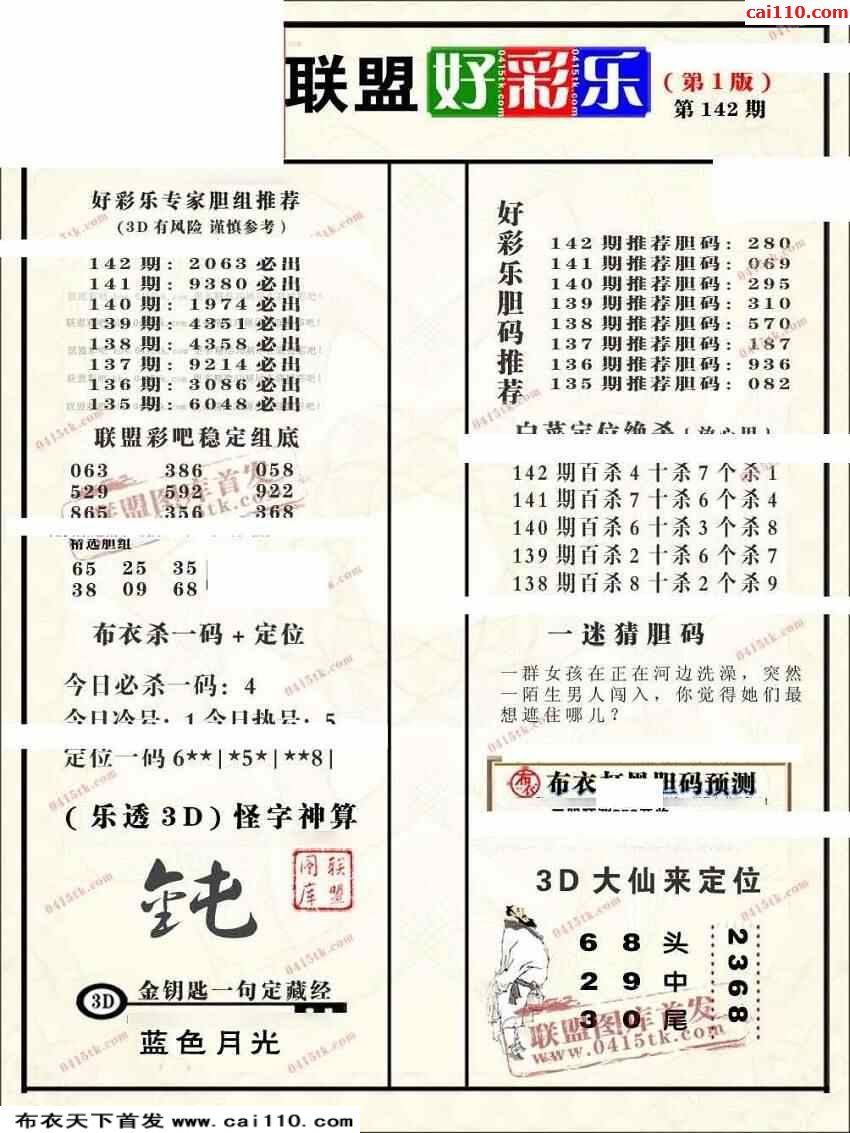 cai110.com
联盟好彩乐
(第1版)
第142期
好彩乐专家胆组推荐
(3D有风险 谨慎参考)
142期: 2063必出
141期: 9380必出
140期: 1974必出
139期: 4351必出
138期: 4358必出
137期: 9214必出
136期: 3086必出
135期: 6048必出
联盟彩吧稳定组底
063 386 058
529 592 922
865 356 368
精选胆组
65 25 35
38 09 68
布衣杀一码+定位
今日必杀一码: 4
今日冷号: 1 今日热号: 5
定位一码 6**|*5*|**8|
(乐透3D)怪字神算
钝
联盟图库
3D
金钥匙一句定藏经
蓝色月光
好彩乐胆码推荐
142期推荐胆码: 280
141期推荐胆码: 069
140期推荐胆码: 295
139期推荐胆码: 310
138期推荐胆码: 570
137期推荐胆码: 187
136期推荐胆码: 936
135期推荐胆码: 082
白菜定位绝杀(放心用)
142期百杀4十杀7个杀1
141期百杀7十杀6个杀4
140期百杀6十杀3个杀8
139期百杀2十杀6个杀7
138期百杀8十杀2个杀9
一迷猜胆码
一群女孩在正在河边洗澡，突然
一陌生男人闯入，你觉得她们最
想遮住哪儿？
布衣
布衣 胆码预测
3D大仙来定位
6 8 头
2 9 中
3 0 尾
2368
联盟图库首发
www.0415tk.com
布衣天下首发 www.cai110.com